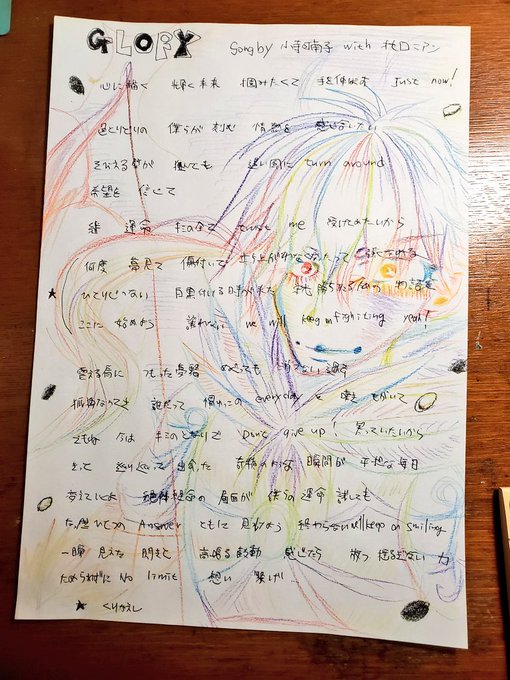 GLORY Song by 小寺可南子 with 桃ロニアン
心に描く 輝く未来 掴みたくて 手を伸ばす Just now!
色とりどりの 僕らが 刻む 情熱を 感じ合いたい
そびえる 壁が 遮っても 追い風に turn around
希望を 信じて
絆 運命 キミの全て trust me 受けとめたいから
何度 夢見て 傷付いて 立ち上がれなくたって 抱きとめる
ひとりじゃない 時が来た 物語を
ここに 始めよう 譲れない we will keep on fighting yeah!
震える肩に
孤独なんて 誰だって everyday
そもね 今は キミのとなりで Don't give up! 笑っていたいから
そして 巡り巡って 出会った 奇跡のような 瞬間が 平凡な毎日
変えていくよ 絶体絶命の 局面が 僕らの運命 試しても
ただひとつの Answer ともに 見つけよう 終わらない we'll keep on smiling
一瞬 見えた 閃きと 高鳴る鼓動 感じたら 放つ 揺るぎない 力
ためらわずに No limit 想い 繋げ!
★ くりかえし